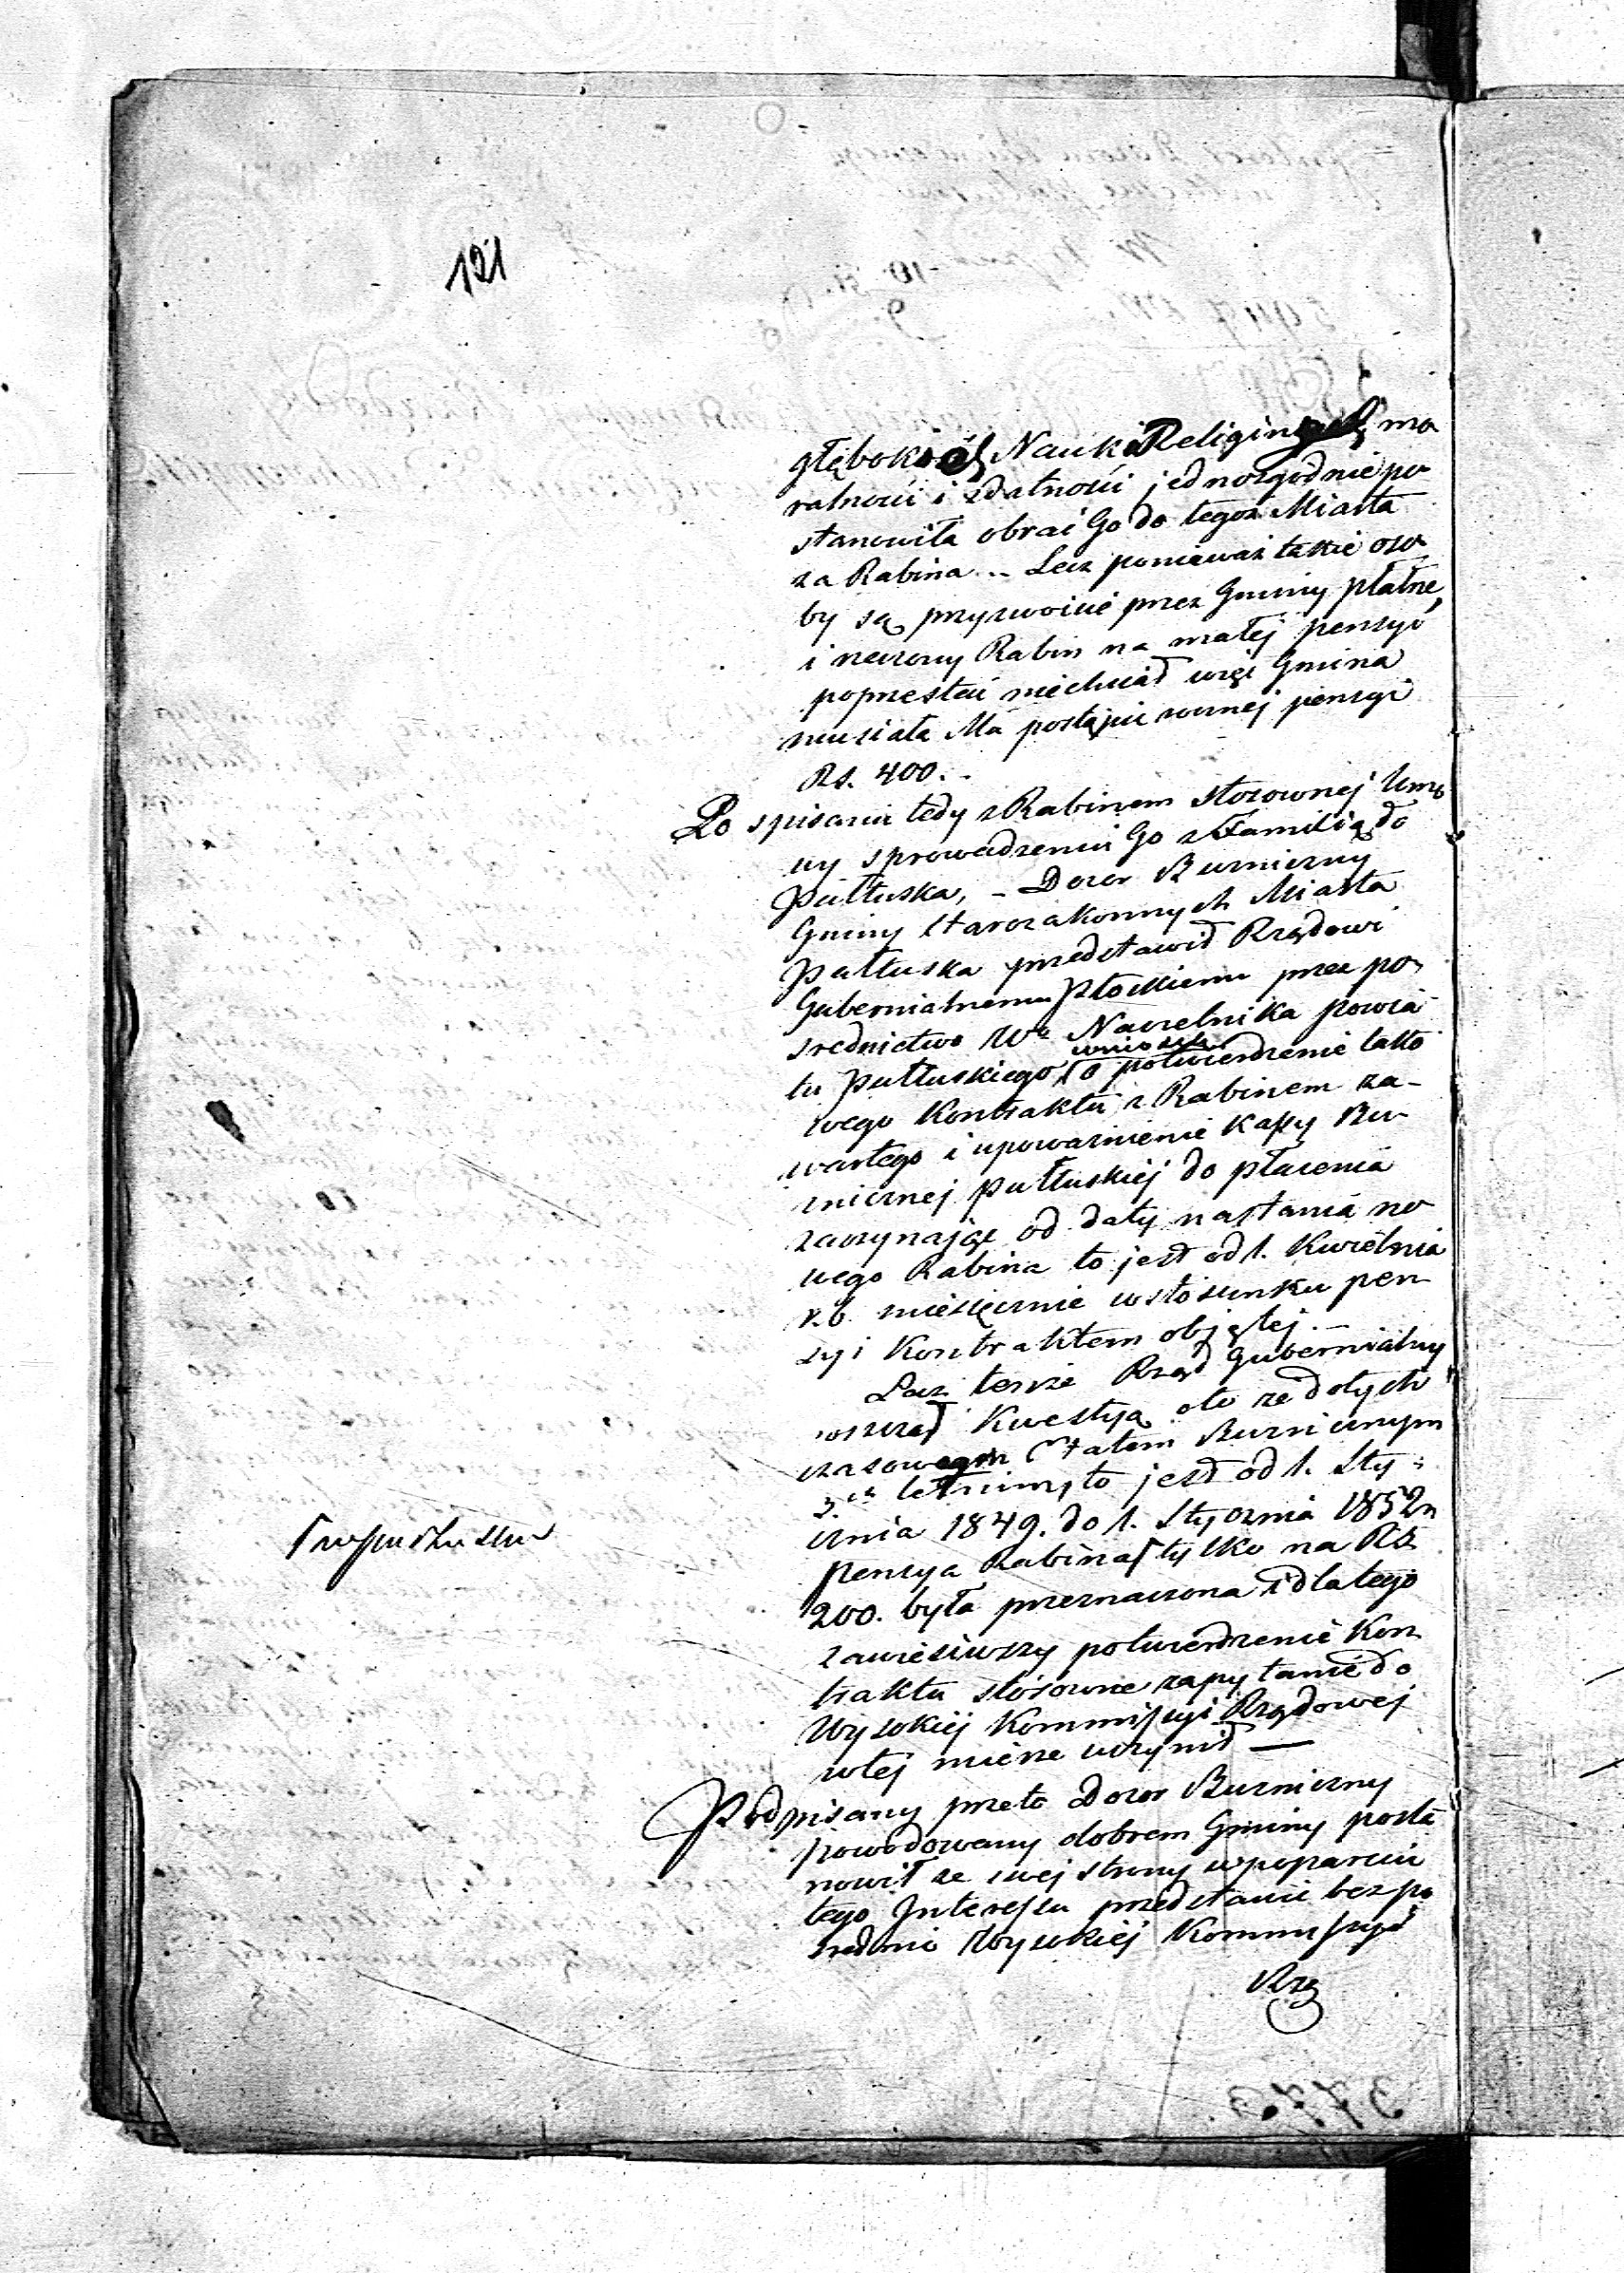 121
głębokiéj Nauki Religinéj mo
ralności i zdatności jednozgodnie po
stanowiła obrać Go do tegoż Miasta
za Rabina .. Lecz ponieważ takie oso
by są przyzwoicie przez Gminy płatne,
i rzeczony Rabin na małej pensyi
poprzestać niechciał więc Gmina
musiała Mu postąpić rocznej pensyi
Rs. 400. -
Po spisaniu tedy z Rabinem stosownej Umo
wy sprowadzeniu Go z Familią do
Pułtuska, - Dozor Bużniczny
Gminy Starozakonnych Miasta
Pułtuska przedstawił Rządowi
Gubernialnemu Płockiemu przez po
srednictwo Wo Naczelnika Powia
wniosek
tu Pułtuskiego, o potwierdzenie tako
wego Kontraktu z Rabinem za-
wartego i upoważnienie Kassy Bu
żnicznej Pułtuskiej do płacenia
zaczynając od daty nastania no
wego Rabina to jest od 1. Kwietnia
r. b. miesięcznie w stosunku pen
syi Kontraktem objętej. —
Lecz tenże Rząd Gubernialny
wszczął Kwestyą oto ze dotych
czasowym Etatem Bużnicznym
3.ch letnim, to jest od 1. Sty-
cznia 1849. do 1. Stycznia 1852
Pensya Rabina tylko na RS
200. była przeznaczona i dlatego
zawiesiwszy potwierdzenie Kon
traktu stosowne zapytanie do
Wysokiéj Kommissyi Rządowej
wtej mierze uczynił —
Podpisany przeto Dozor Bużniczny
powodowany dobrem Gminy posta
nowił ze swej strony w poparciu
tego Interessu przedstawić bezpo
srednio Wysokiéj Kommissyi
Rzą
3773